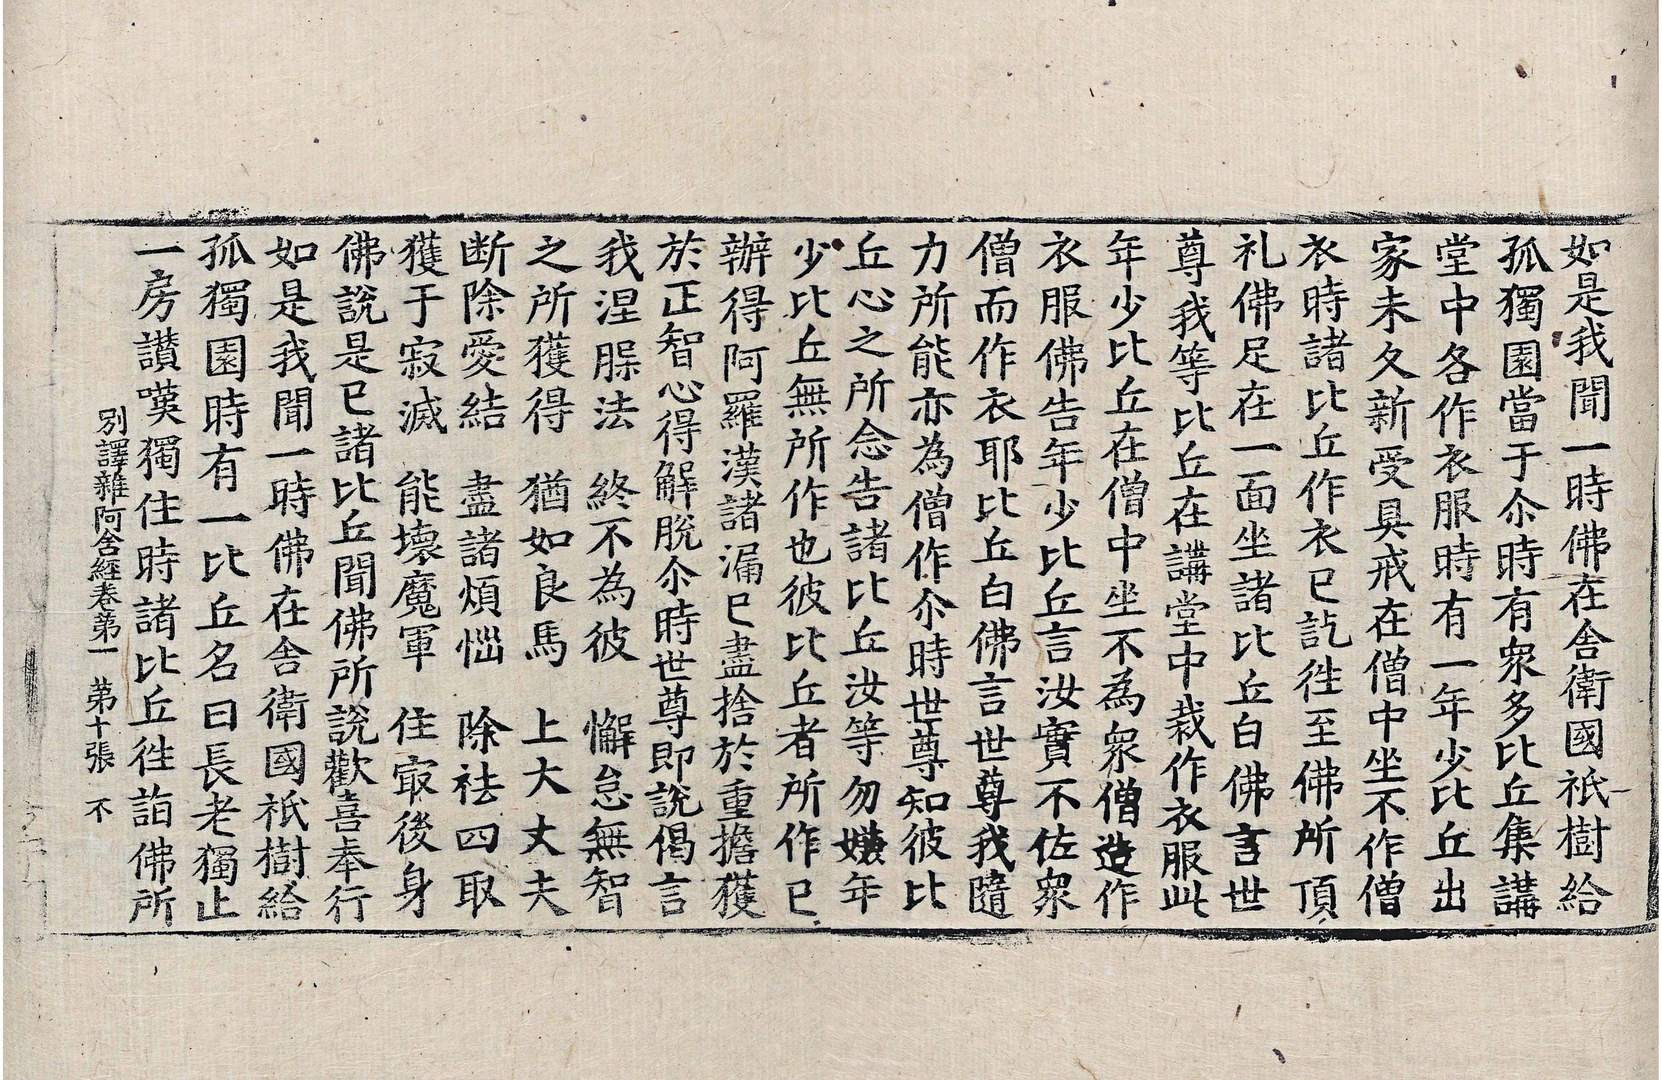 如是我聞一時佛在舍衛國祇樹給
孤獨園當于尒時有衆多比丘集講
堂中各作衣服時有一年少比丘出
家未久新受具戒在僧中坐不作僧
衣時諸比丘作衣已訖徃至佛所頂
礼佛足在一面坐諸比丘白佛言世
尊我等比丘在講堂中裁作衣服此
年少比丘在僧中坐不為衆僧造作
衣服佛告年少比丘言汝實不佐衆
僧而作衣耶比丘白佛言世尊我隨
力所能亦為僧作尒時世尊知彼比
丘心之所念告諸比丘汝等勿嫌年
少比丘無所作也彼比丘者所作已
辦得阿羅漢諸漏已盡捨於重擔獲
於正智心得解脫尒時世尊即說偈言
我涅槃法　終不為彼　懈怠無智
之所獲得　猶如良馬　上大丈夫
断除愛結　盡諸煩惱　除祛四取
獲于寂滅　能壞魔軍　住㝡後身
佛說是已諸比丘聞佛所說歡喜奉行
如是我聞一時佛在舍衛國祇樹給
孤獨園時有一比丘名曰長老獨止
一房讃嘆獨住時諸比丘徃詣佛所
別譯雜阿含經卷第一　第十張　不